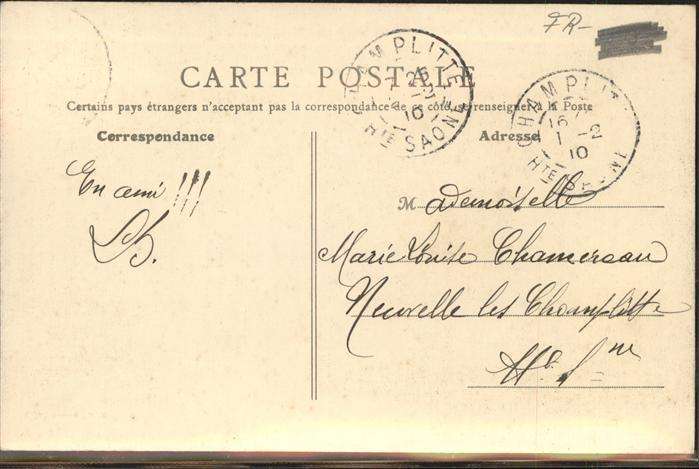 FR-
CARTE POSTALE
Certains pays étrangers n'acceptent pas la correspondance de ce côté, se renseigner à la Poste
Correspondance
Adresse
CHAMPLITTE
10
Hte SAONE
CHAMPLITTE
16
1 -2
10
Hte SAONE
En ami !!!
LB.
Mademoiselle
Marie Louise Chamereau
Neuvelle les Champlitte
Hte Sne